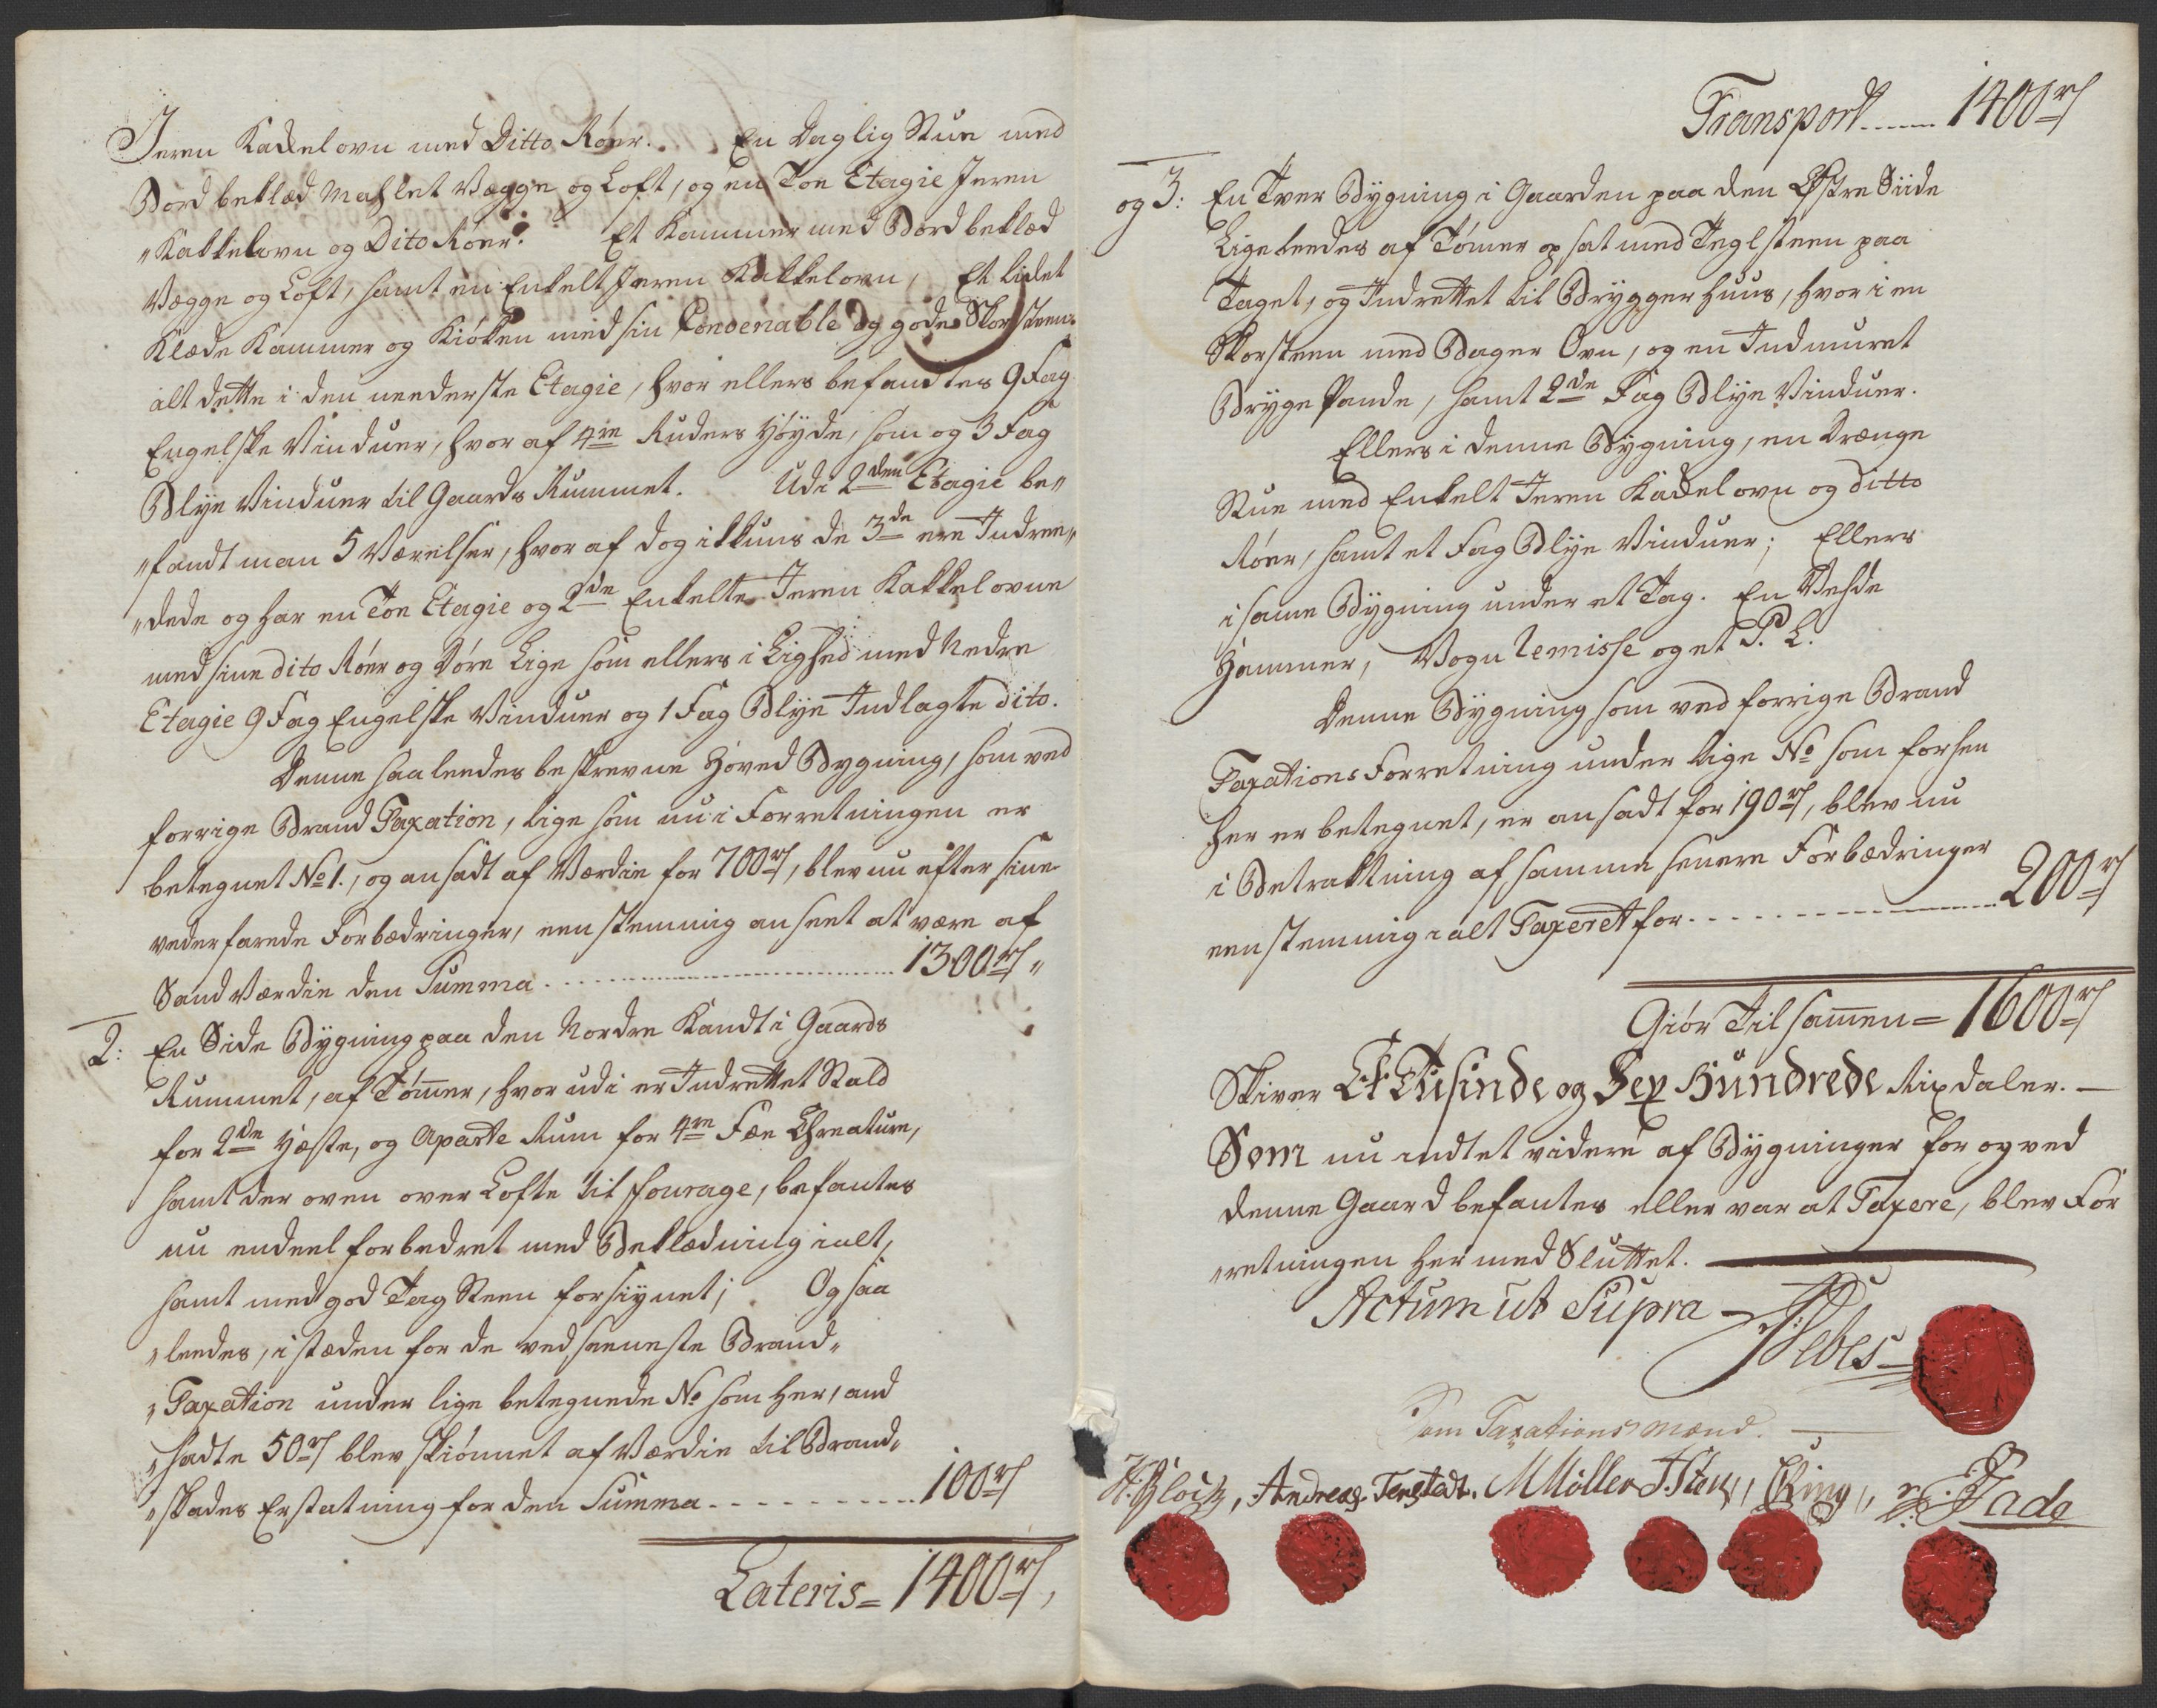 Jeren Kackelovn med Ditto Röer. En Daglig Stue med
Bord beklæd Mahlet Vægge og Loft, og en Toe Etagie Jeren
"Kakkelovn og Dito Röer. Et Kammer med Bord beklæd
Vægge og Loft, samt en Enkelt Jeren Kakkelovn, Et lidet
Klæde Kammer og Kiöken med sin Convenable og gode Skorsteen.
alt dette i den neederste Etagie, hvor ellers befandtes 9 Fag
Engelske Vinduer, hvor af 4re Ruders Höyde, som og 3 Fag
Blye Vinduer til Gaards Rummet. Udi 2den Etagie be"
"fandt man 5 Værelser, hvor af dog ikkuns de 3de ere Indree"
"dede og har en Toe Etagie og 2de Enkelte Jeren Kakkelovne
med sine dito Röer og Döre Lige som ellers i Lighed med Nedre
Etagie 9 Fag Engelske Vinduer og 1 Fag Blye Indlagte dito.
Denne saaleedes beskrevne Hoved Bygning, som ved
forrige Brand Taxation, lige som nu i Forretningen er
betegnet No 1., og ansadt af Værdie for 700 rd, blev nu efter sine
vederfarede Forbædringer, eenstemmig anseet at være af
Sand Værdie den Summa .......... 1300 rd "
2: En Side Bygning paa den Nordre Kandt i Gaards
Rummet, af Tömmer, hvor udi er Indrettet Stald
for 2de Hæste, og Aparte Rum for 4re Fæe Chreature,
samt der oven over Lofte til Fourage, befantes
nu endeel forbedret med Beklædning i alt,
samt med god Tag Steen forsiynet; Og saa
"leedes, i stæden for de ved seeneste Brand"
"Taxation under lige betegnede No som her, and
"sadte 50 rd blev skiönnet af Værdie til Brand"
"skades Erstatning for den Summa .......... 100 rd
Lateris = 1400 rd,
Transport ...... 1400 rd
og 3: En Tver Bygning i Gaarden paa den Östre Siide
Ligeleedes af Tömer op sat med Teglsteen paa
Taget, og Indrettet til Brygger huus, hvor i en
Skorsteen med Bager Ovn, og en Indmuret
Bryge Pande, samt 2de Fag Blye Vinduer.
Ellers i denne Bygning, en Drænge
Stue med Enkelt Jeren Kackelovn og ditto
Röer, samt et Fag Blye Vinduer; Ellers
i same Bygning under et Tag. En Vehde
Hammer, Vogn Remisse og et P. L.
Denne Bygning som ved forrige Brand
Taxations Forretning under lige No som forhen
her er betegnet, er ansadt for 190 rd, blev nu
i Betraktning af samme senere Forbædringer
eenstemmig i alt Taxeret for .......... 200 rd
Giör Tilsamen = 1600 rd
Skiver Et Tusinde og Sex Hundrede Rixdaler. —
Som nu indtet videre af Bygninger for og ved
denne Gaard befantes eller var at Taxere, blev For
"retningen her med Sluttet. —
Actum ut Supra —
Som Taxations Mænd. —
Andreas Tenstedt. M Möller